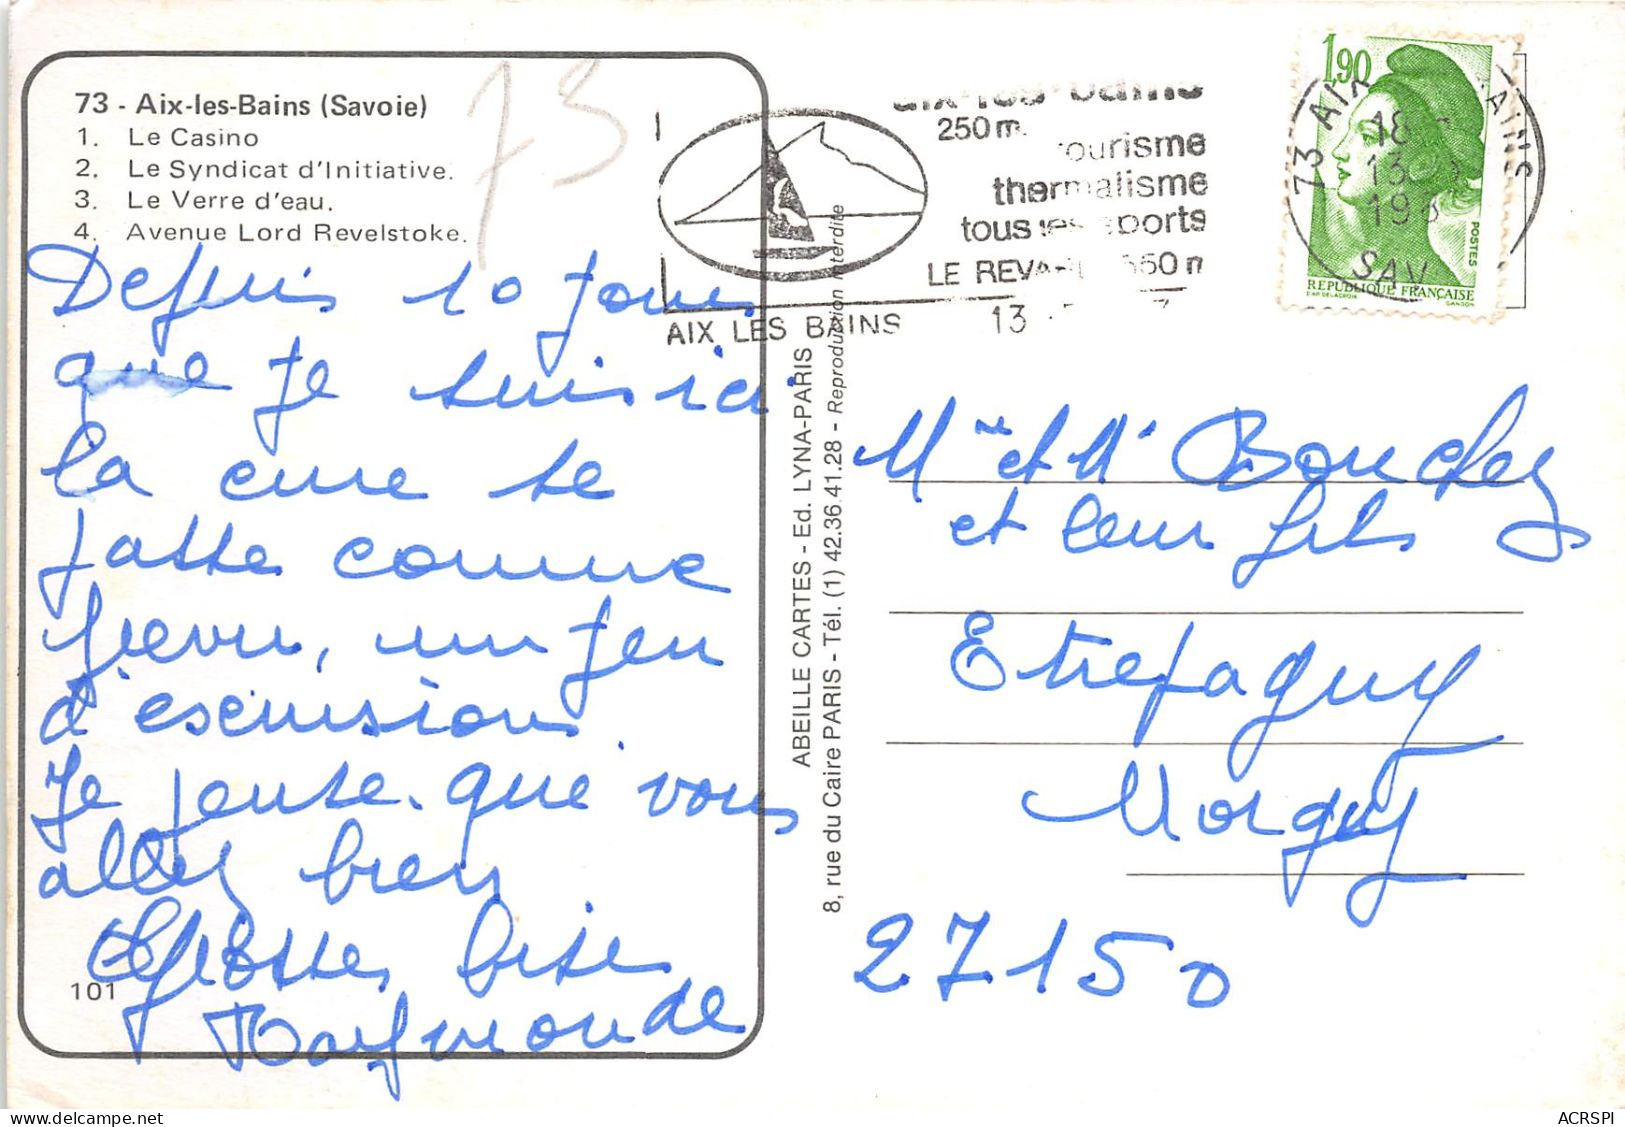 73 - Aix-les-Bains (Savoie)
1. Le Casino
2. Le Syndicat d'Initiative.
3. Le Verre d'eau.
4. Avenue Lord Revelstoke.
73
Depuis 10 jours
que je suis ici
la cure se
passe comme
prevu, un peu
d'escursions.
Je pense que vous
allez bien
Grosses bise
Raymonde
101
ABEILLE CARTES - Ed. LYNA-PARIS
8, rue du Caire PARIS - Tél. (1) 42.36.41.28 - Reproduction interdite
aix-les-bains
250m.
tourisme
thermalisme
tous les sports
LE REVARD
AIX LES BAINS
13
1,90
POSTES
REPUBLIQUE FRANÇAISE
D'AP. DELACROIX GANDON
73 AIX BAINS
18
13
19
SAV
Mme et Mr Bouchez
et leur fils
Etrepagny
27150
ACRSPI